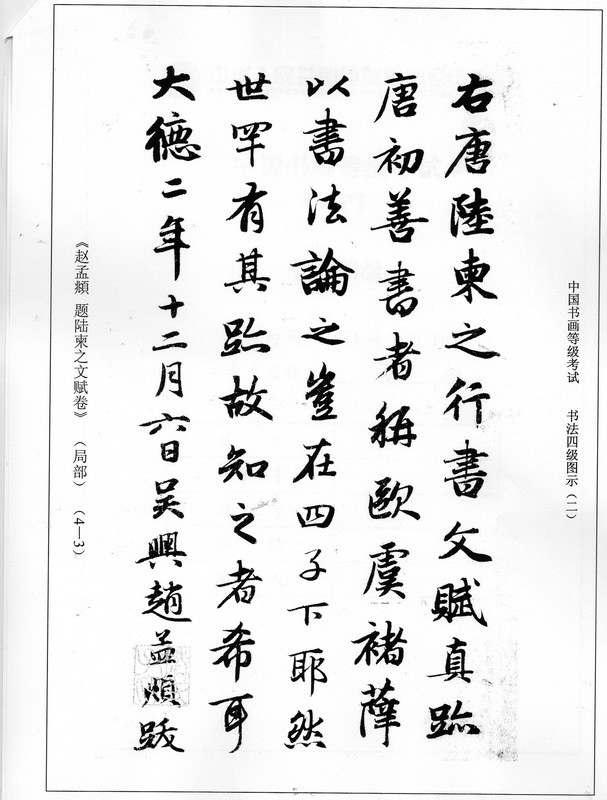 中国书画等级考试 书法四级图示（二）
右唐陸柬之行書文賦真跡
唐初善書者稱歐虞褚薛
以書法論之豈在四子下耶然
世罕有其跡故知之者希耳
大德二年十二月六日吴興趙孟頫跋
《赵孟頫 题陆柬之文赋卷》（局部）（4—3）